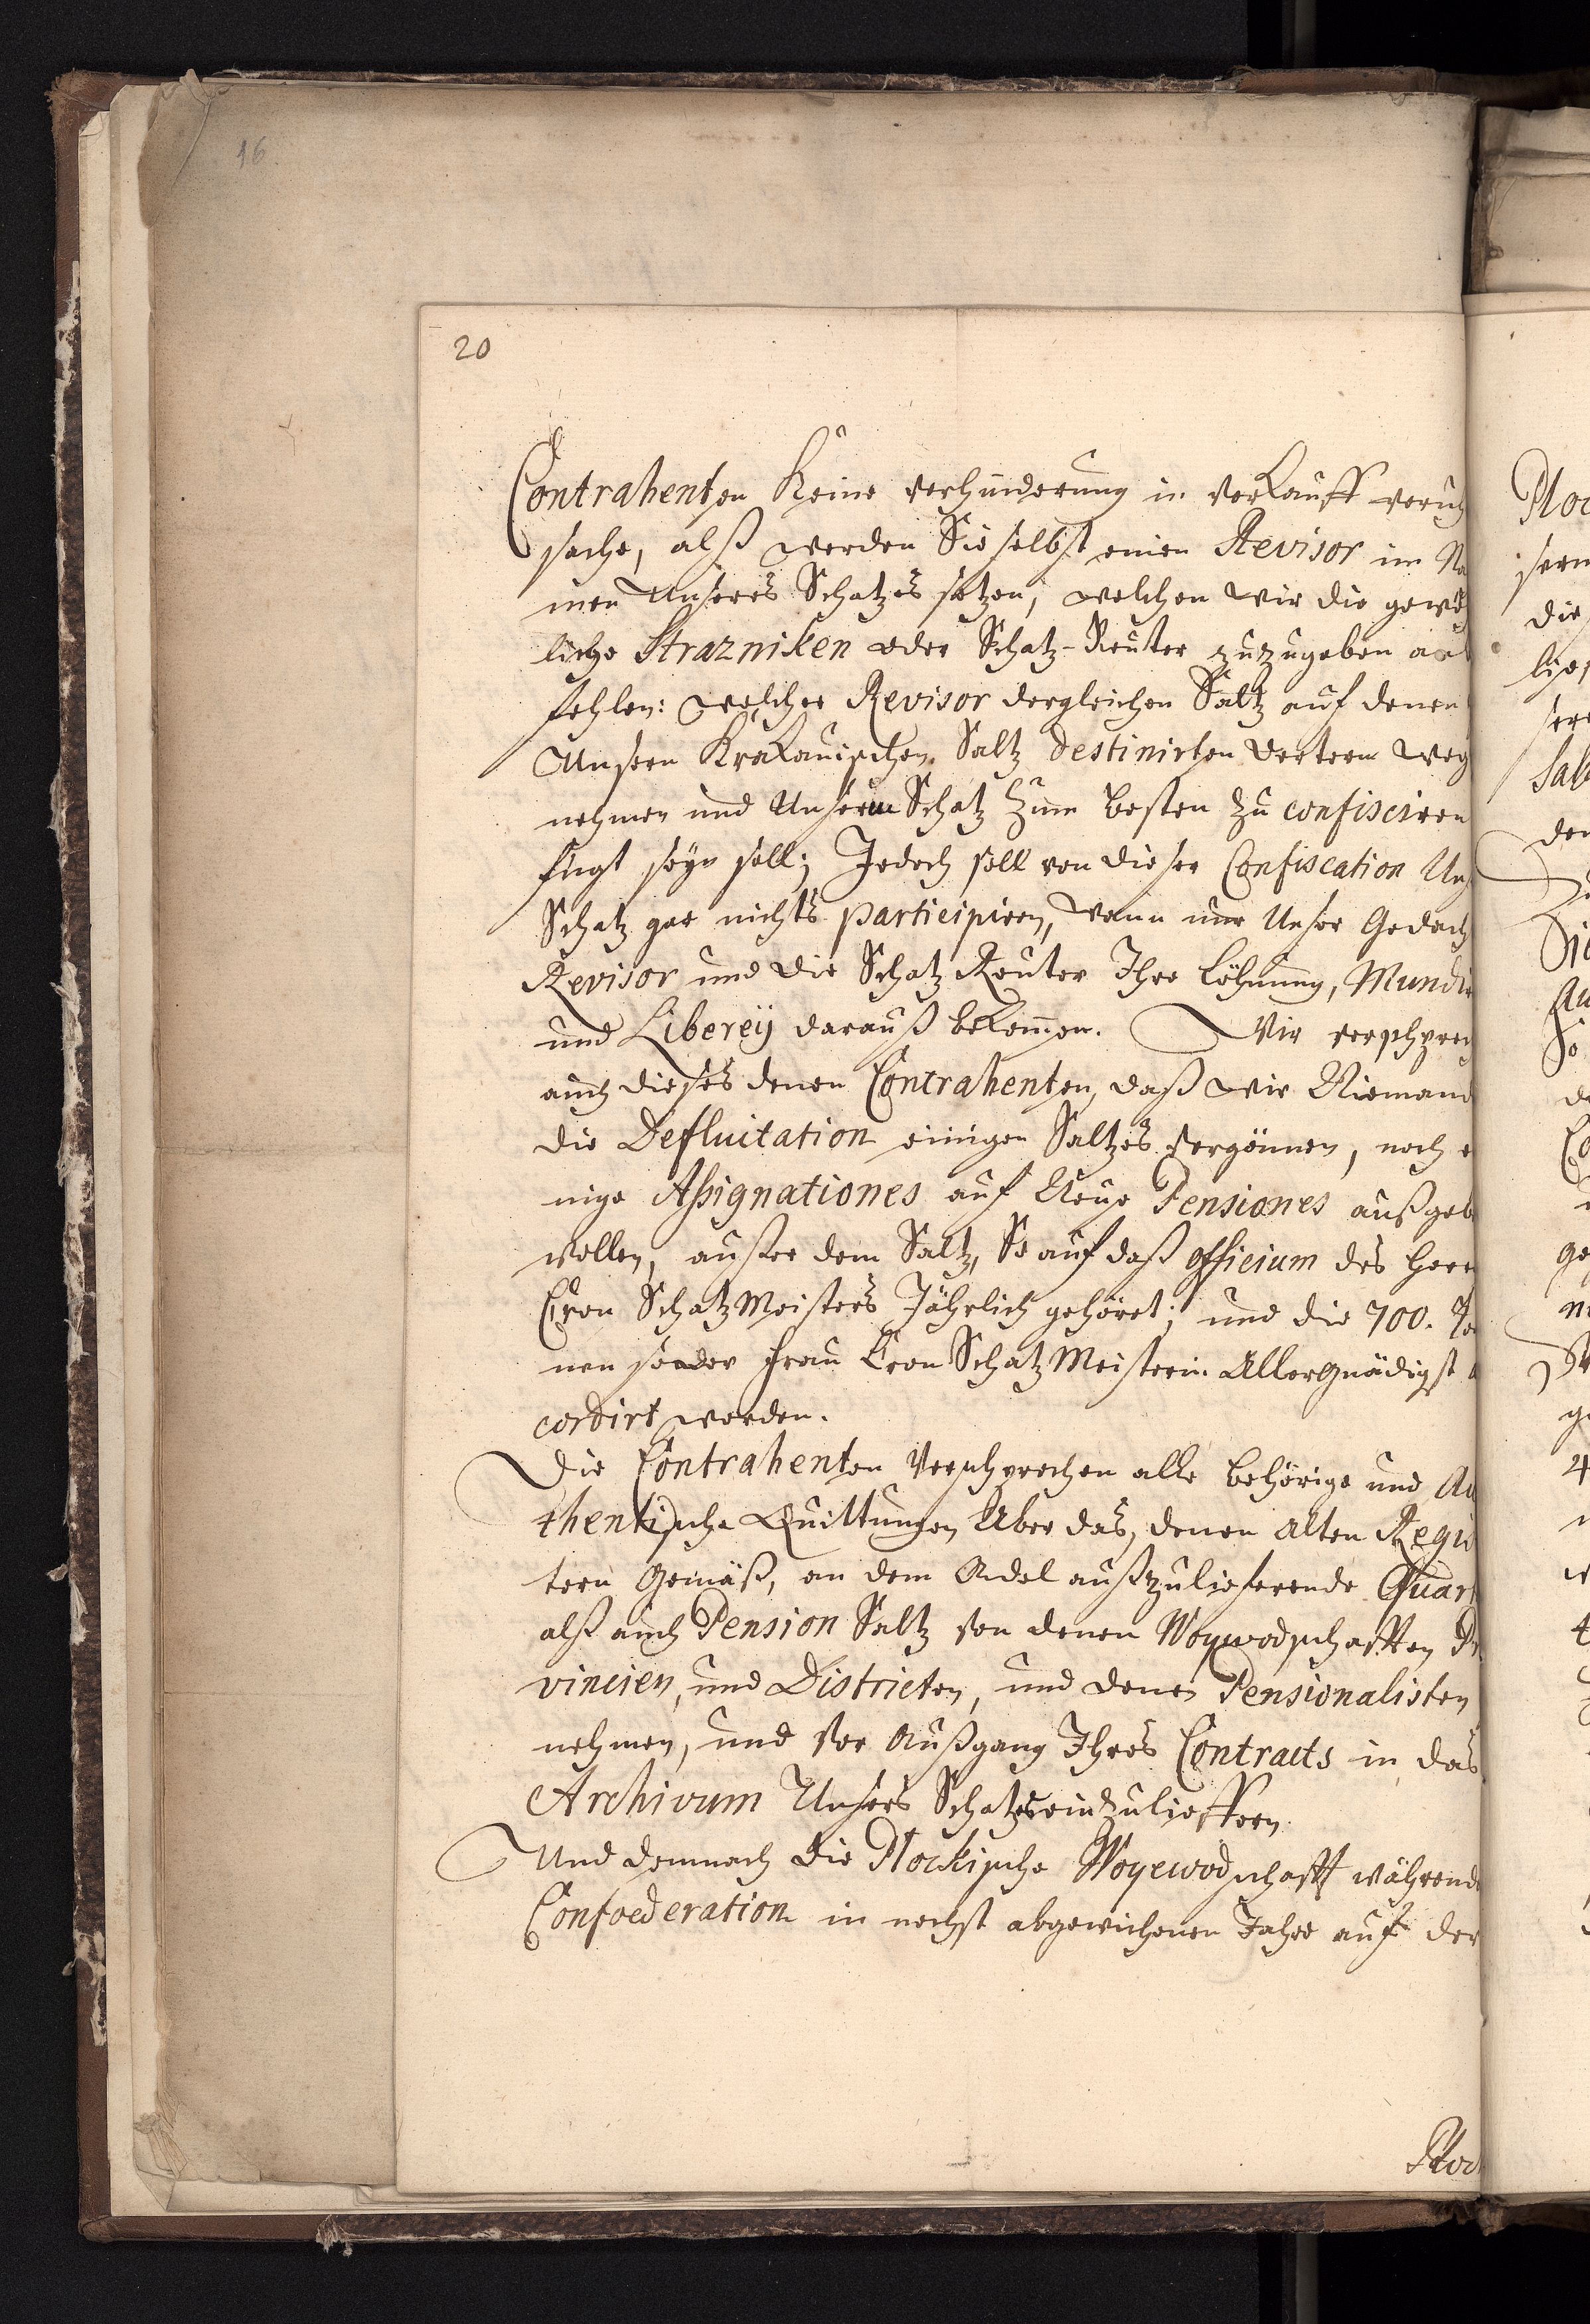 16
20
Contrahenten Keine verhinderung in verkauff veruh
sache, alß werden Sie selbst einen Revisor im Na
men Unseres Schatzes setzen, welchen wir die gewöh
liche Strazniken oder Schatz-Reuter zuzugeben
fehlen: welcher Revisor dergleichen Saltz auf denen
Unsern Krakauischen Saltz destinirten oertern weg
nehmen und Unserm Schatz zum besten zu confisciren
fugt seyn soll; Jedoch soll von dieser Confiscation Uns
Schatz gar nichts participiren, wann nur Unser Gedach
Revisor und die Schatz Reuter Ihre Löhnung, Mundi
und Liberey darauß bekommen. Wir versprech
auch dieses denen Contrahenten, daß wir Niemand
die Defluitation einigen Saltzes vergönnen, noch e
nige Assignationes auf Neue Pensiones außgeb
wollen, ausser dem Saltz, So auf daß officium des Herr
Cron Schatz Meisters Jährlich gehöret; und die 700. To
nen so der Frau Cron Schatz Meisterin Allergnädigst a
cordirt worden.
Die Contrahenten Versprechen alle behörige und Au
thentische Quittungen Uber das, denen Alten Regis
tern Gemäß, an dem Adel außzulieferende Quart
alß auch Pension Saltz von denen Woywodschafften Pr
vincien, und Districten, und denen Pensionalisten
nehmen, und vor Außgang Ihres Contracts in das
Archivum Unsers Schatzes einzulieffern.
Und demnach die Plockische Woyewodschafft währende
Confoederation in nechst abgewichenen Jahre auf der
Ploc
Ploc
sern
die
lies
sere
Salt
den